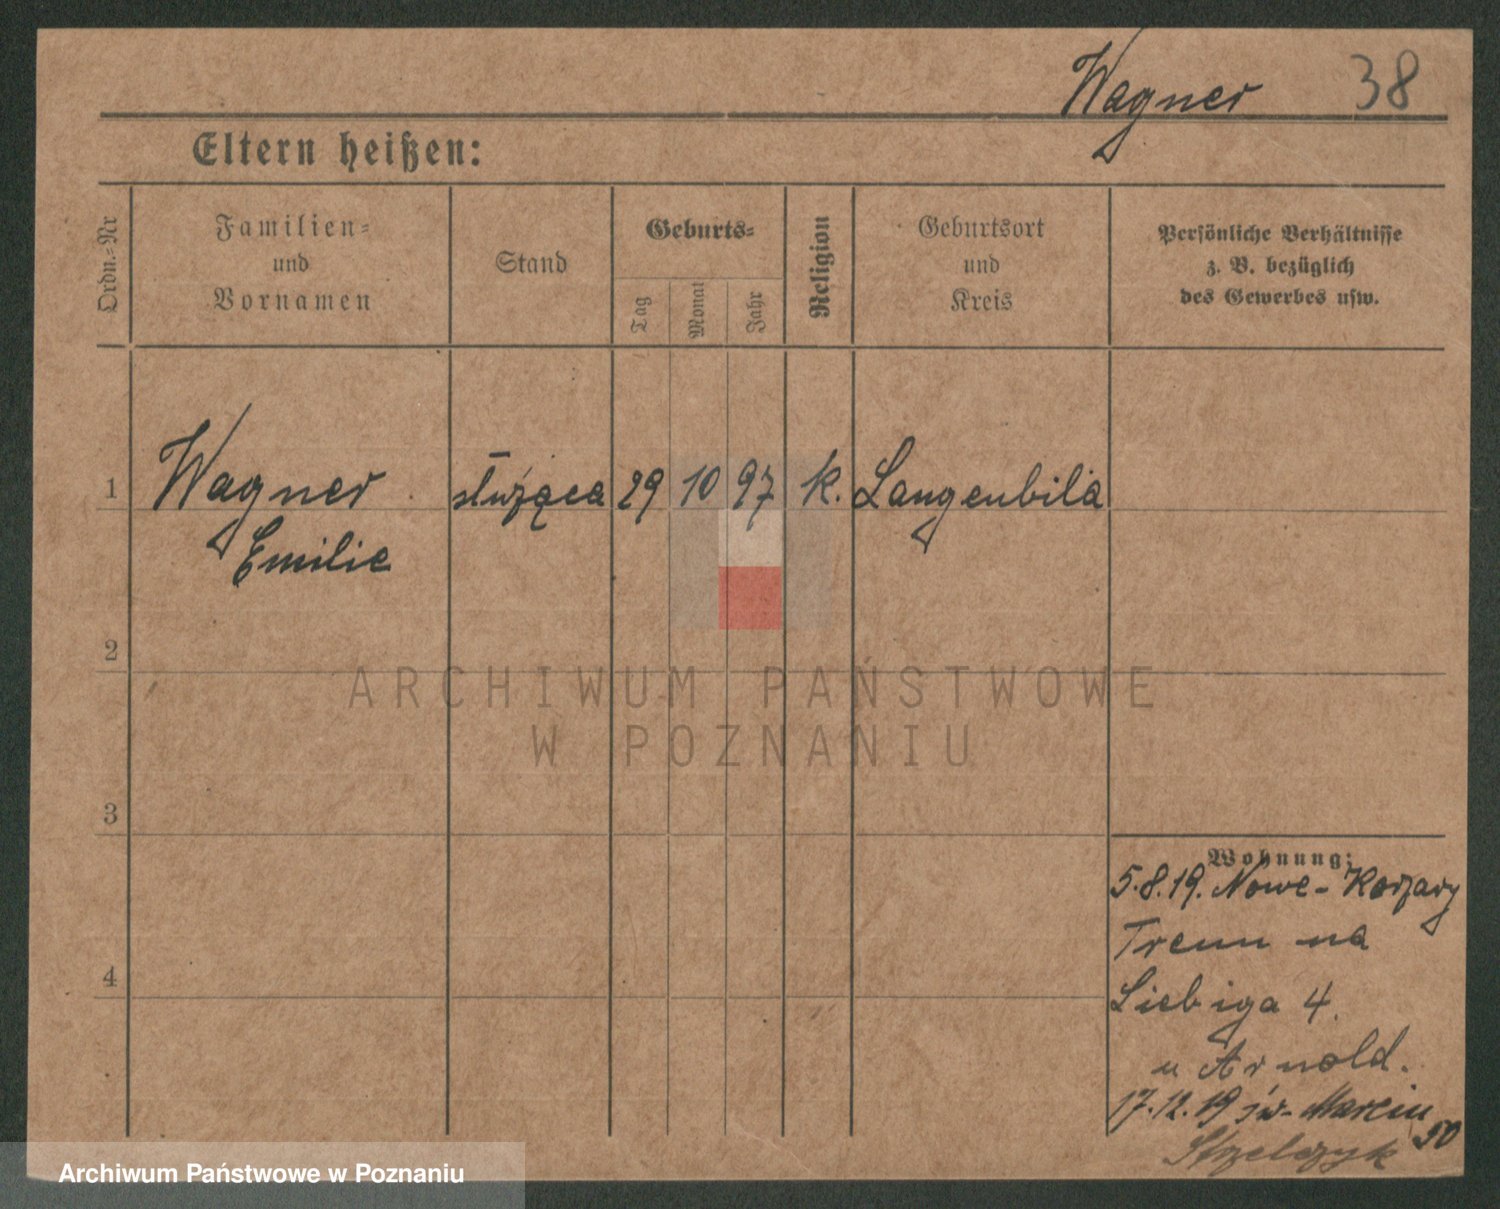 Wagner 38
Eltern heißen:
Ordn.-Nr
Familien-
und
Vornamen
Stand
Geburts-
Tag
Monat
Jahr
Religion
Geburtsort
und
Kreis
Persönliche Verhältnisse
z. B. bezüglich
des Gewerbes usw.
1 Wagner służąca 29 10 97 k. Langenbila
Emilie
2
ARCHIWUM PAŃSTWOWE
W POZNANIU
3
Wohnung:
5.8.19. Nowe-
na
Liebiga 4.
u Arnold.
4
17.12.19 św. Marcin 50
Strzelczyk
Archiwum Państwowe w Poznaniu